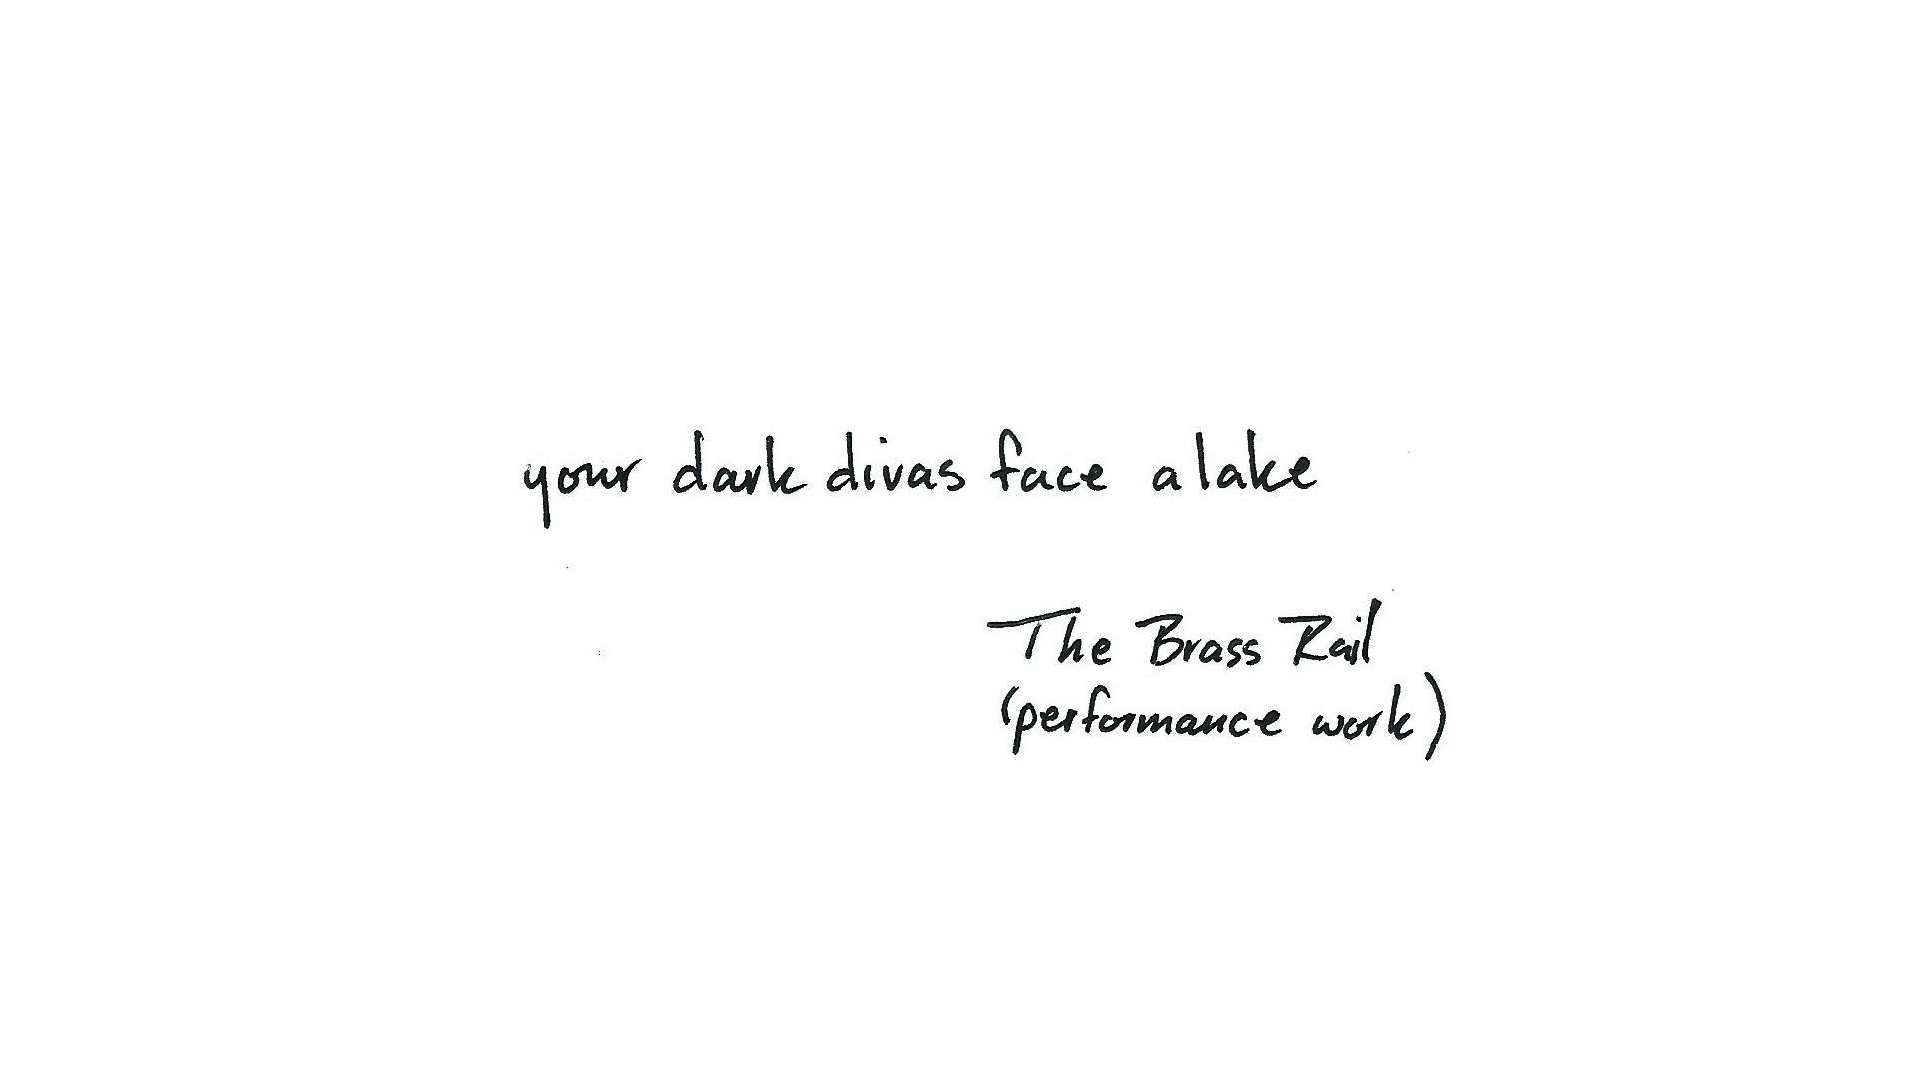 your dark divas face a lake
The Brass Rail
(performance work)